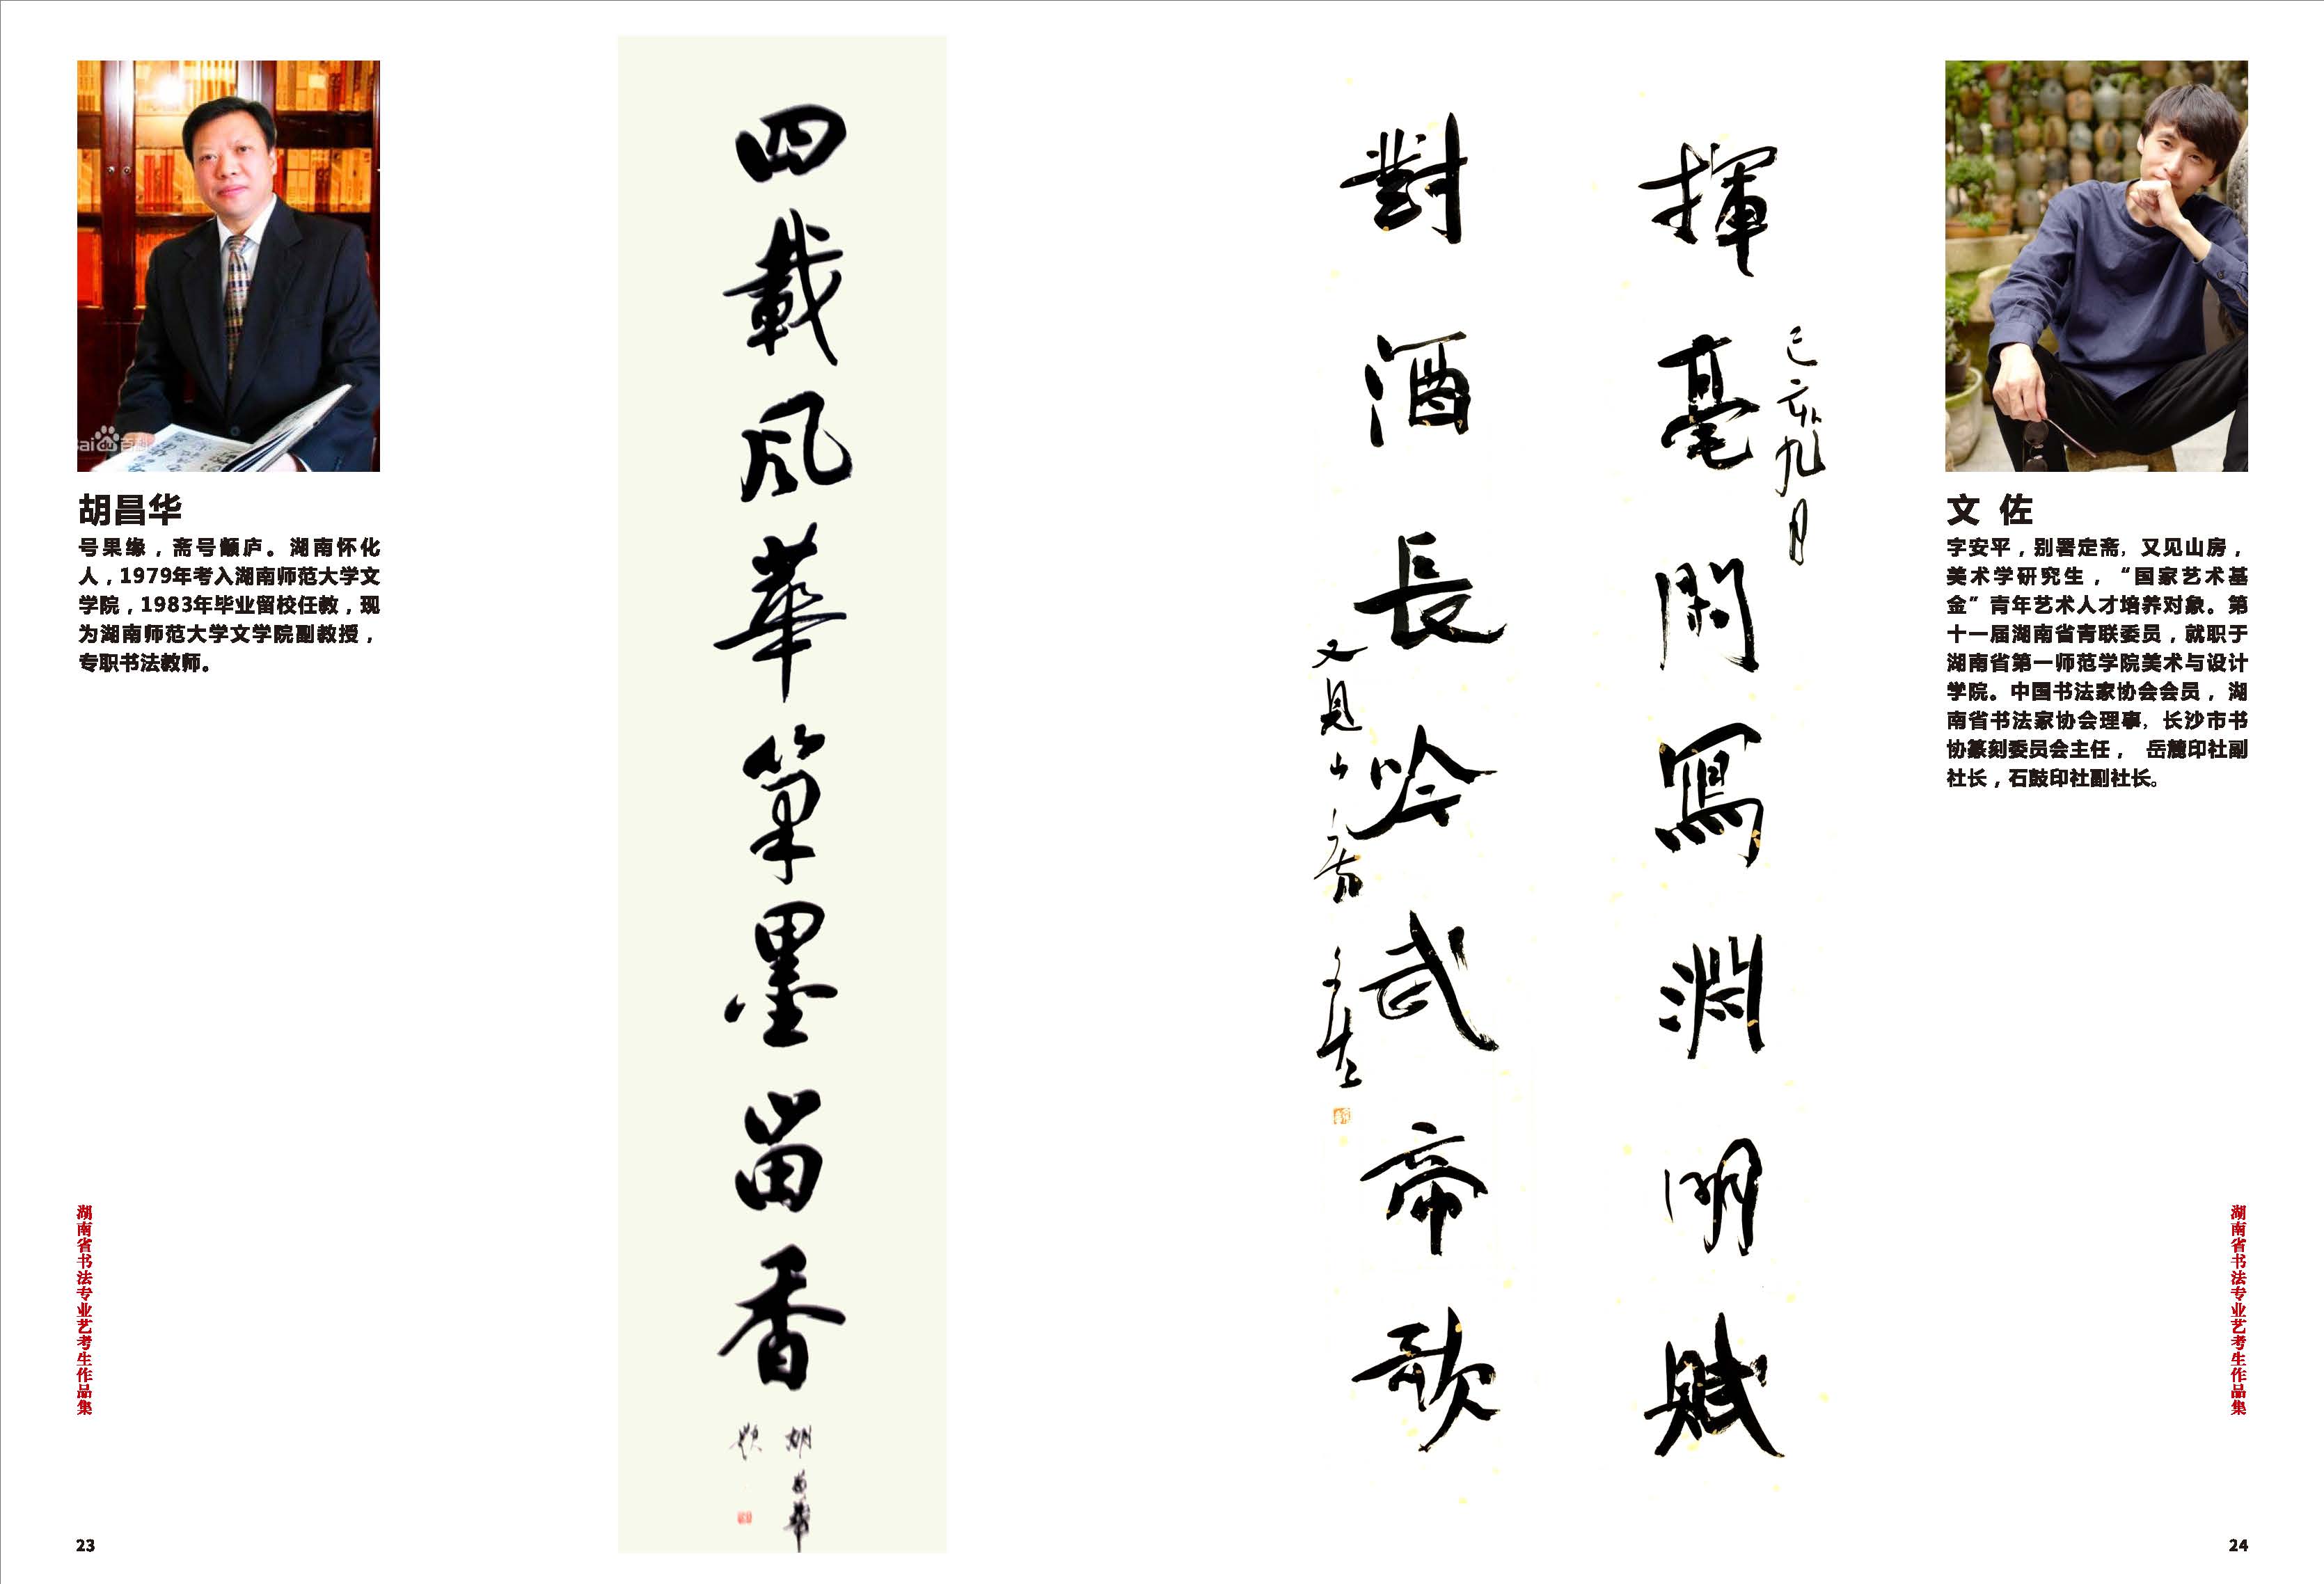 胡昌华
号果缘，斋号颥庐。湖南怀化
人，1979年考入湖南师范大学文
学院，1983年毕业留校任教，现
为湖南师范大学文学院副教授，
专职书法教师。
四載風華筆墨留香
胡昌華
題
揮毫閑寫淵明賦
己亥九月
對酒長吟武帝歌
又見山房 文佐
文 佐
字安平，别署定斋，又见山房，
美术学研究生，“国家艺术基
金”青年艺术人才培养对象。第
十一届湖南省青联委员，就职于
湖南省第一师范学院美术与设计
学院。中国书法家协会会员，湖
南省书法家协会理事，长沙市书
协篆刻委员会主任， 岳麓印社副
社长，石鼓印社副社长。
湖南省书法专业艺考生作品集
湖南省书法专业艺考生作品集
23
24